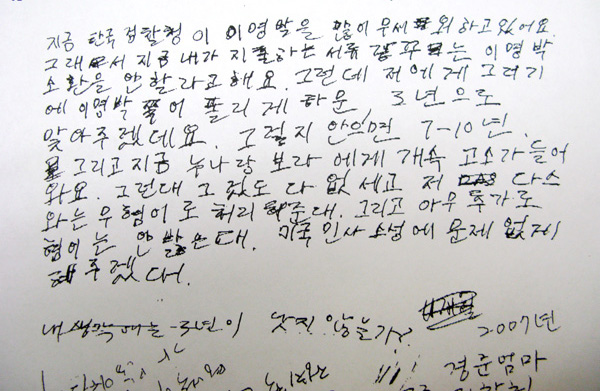 지금 한국 검찰청이 이명박을 많이 무세워하고 있어요.
그래서 지금 내가 지출하는 서류 는 이명박
소환을 안할라고 해요. 그런데 저에게 그러기
에 이명박 풀어 풀리게 하문, 3년으로
맞아주겠데요. 그럴지 안으면 7-10년.
그리고 지금 누나랑 보라에게 개속 고소가 들어
와요. 그런대 그것도 다 없세고 저 다스
와는 무협이로 처리 준대. 그리고 아무 추가로
협이는 안 받는대. 미국 민사 소성에 문제 없게
해주겠대.
내 생각에는 3년이 낫지 않을가?
2007년
경준엄마